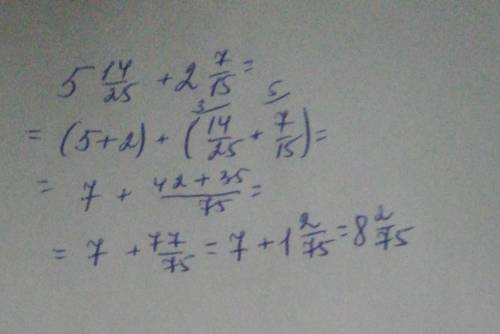 5 14/25 + 2 7/15 =
= (5+2) + (14/25 ³⁄ + 7/15 ⁵⁄) =
= 7 + (42+35)/75 =
= 7 + 77/75 = 7 + 1 2/75 = 8 2/75